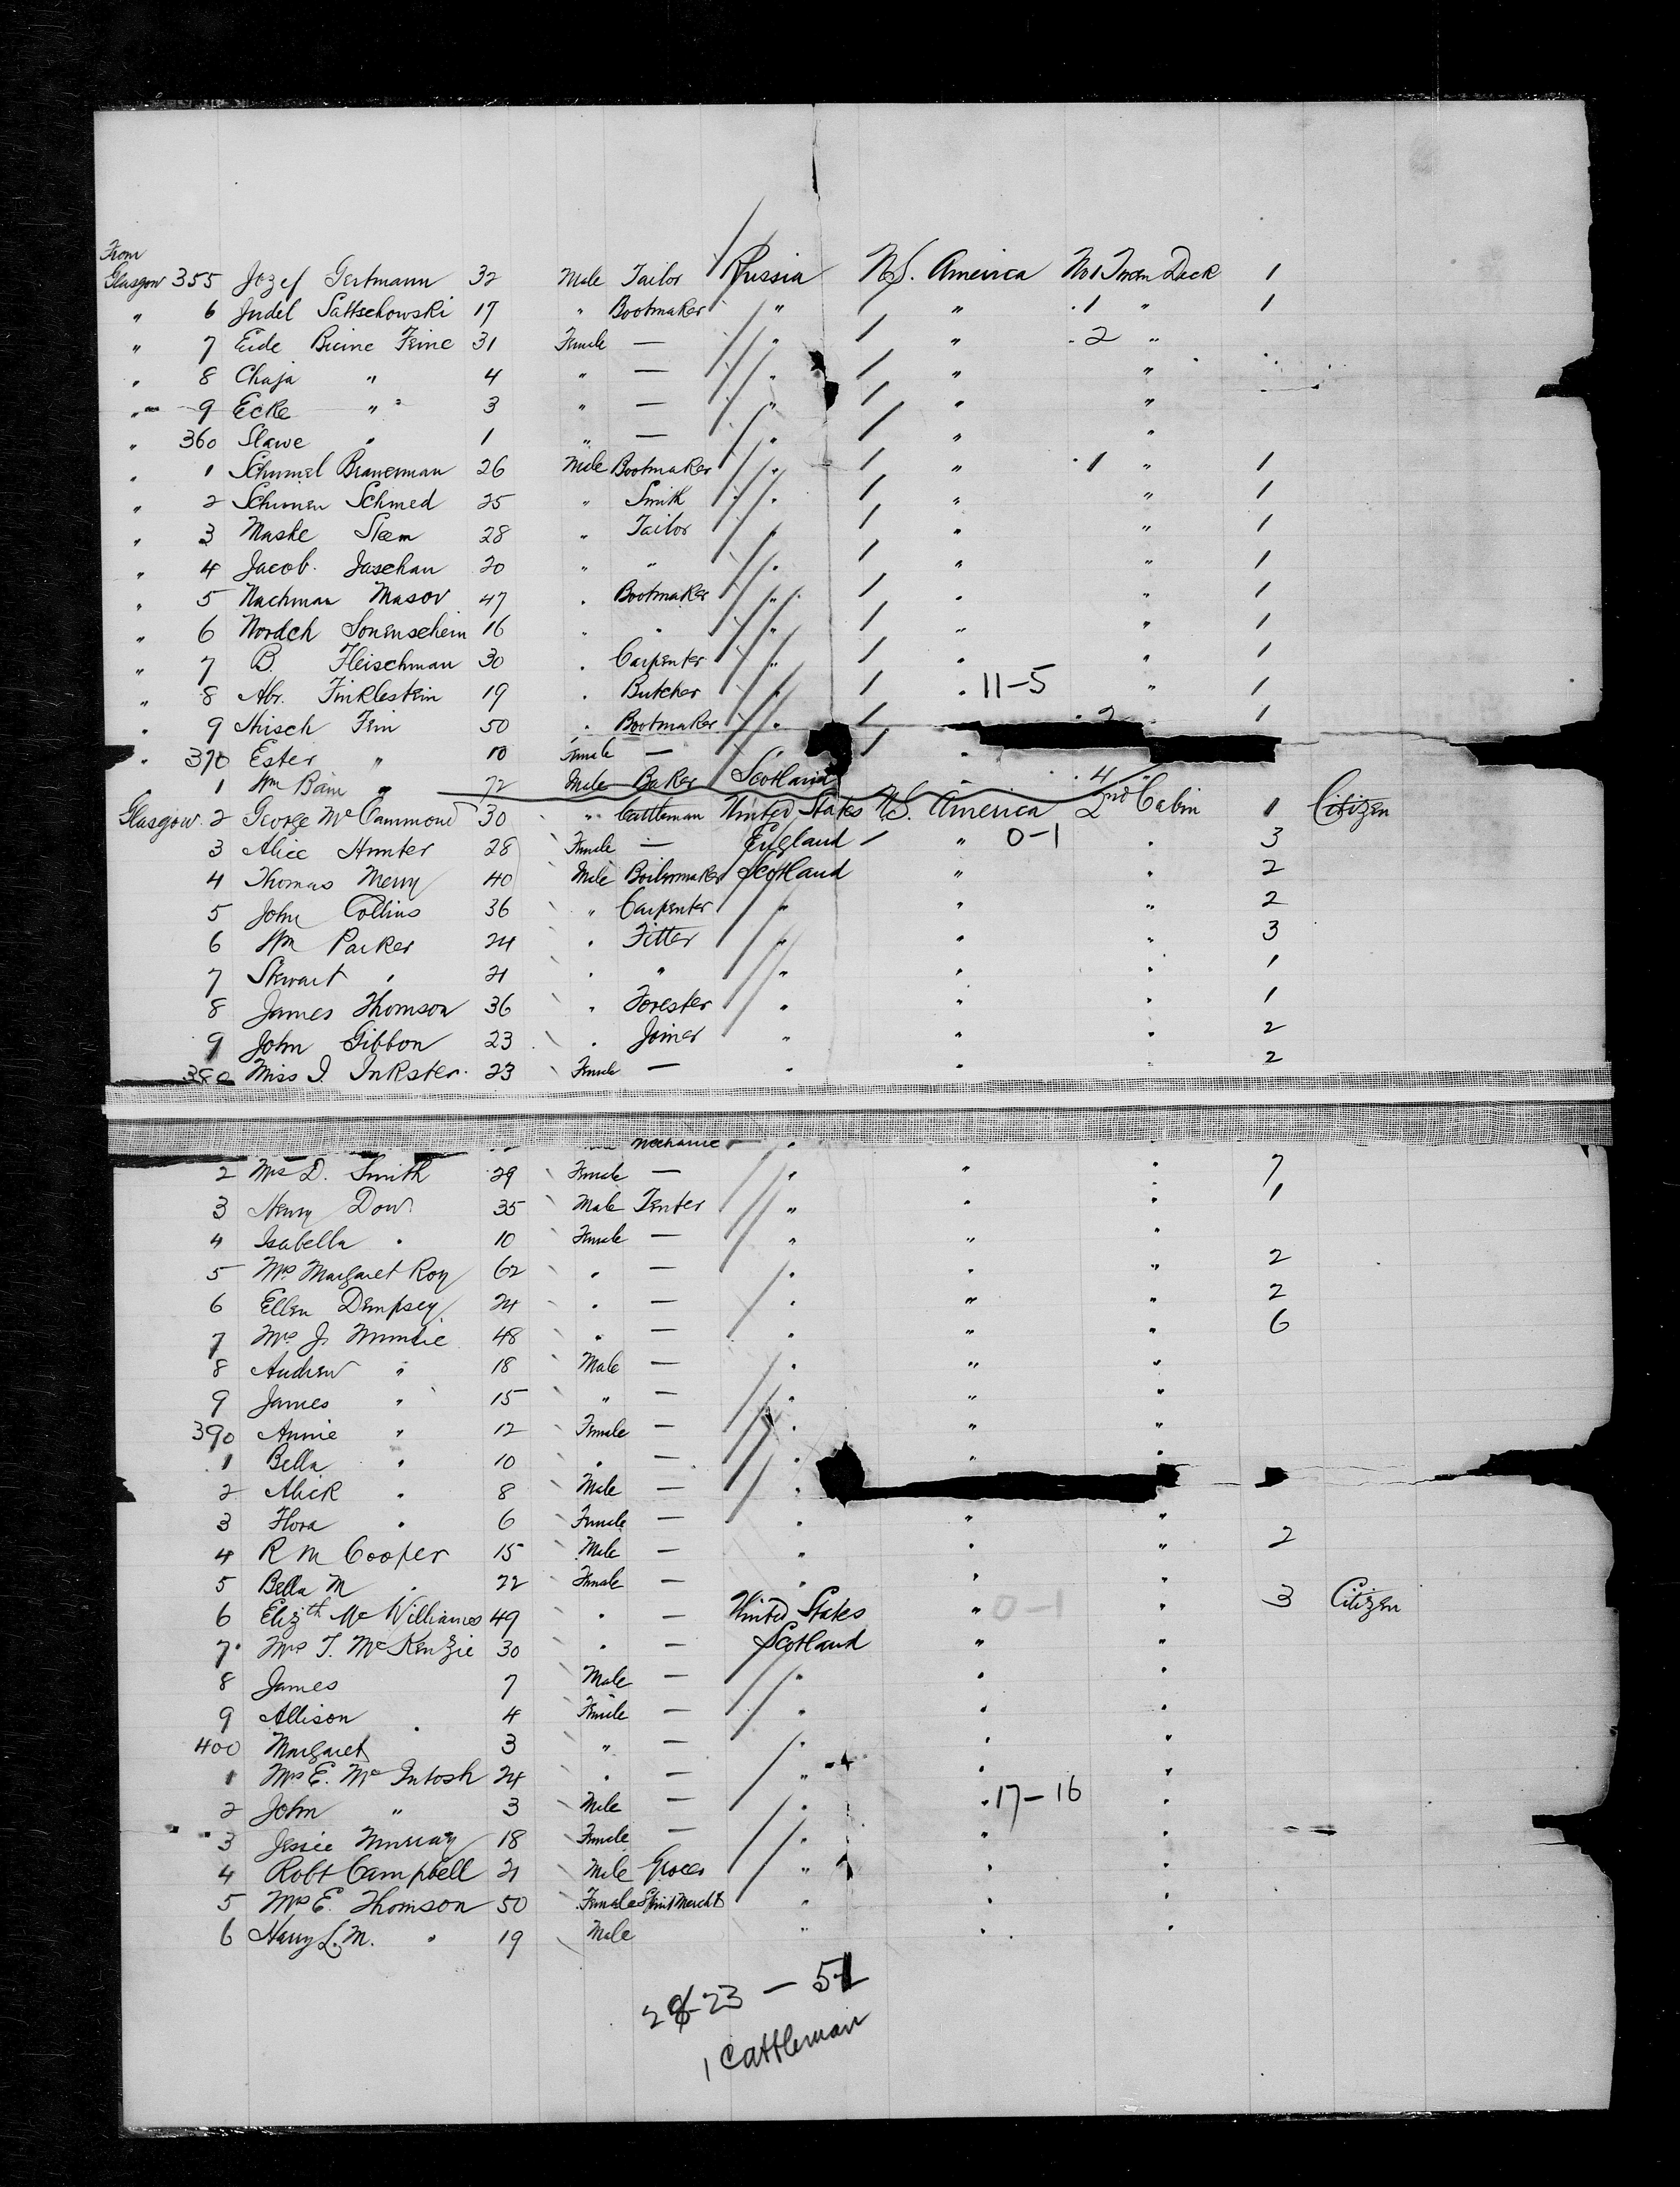 From
Glasgow 355 Jozef Gertmann 32 Male Tailor Russia U.S. America No 1 Tween Deck 1
" 6 Judel Sattschowski 17 " Bootmaker " " 1 " 1
" 7 Eide Bicine Feine 31 Female — " " 2 "
" 8 Chaja " 4 " — " " "
" 9 Ecke " 3 " — " " "
" 360 Slawe " 1 " — " " "
" 1 Schumel Braverman 26 Male Bootmaker " " 1 " 1
" 2 Schimen Schmed 25 " Smith " " " 1
" 3 Maske Steem 28 " Tailor " " " 1
" 4 Jacob Jaschan 20 " " " " " 1
" 5 Nachman Masov 47 " Bootmaker " " " 1
" 6 Nordch Sonenschein 16 " " " " " 1
" 7 B. Fleischman 30 " Carpenter " " " 1
" 8 Abr. Finklestein 19 " Butcher " " 11-5 " 1
" 9 Hirsch Fein 50 " Bootmaker " 2 1
" 370 Ester " 10 Female — "
1 Wm Bain 72 Male Baker Scotland " 4 "
Glasgow 2 George McCammond 30 " Cattleman United States U.S. America 2nd Cabin 1 Citizen
3 Alice Hunter 28 Female — England " 0-1 " 3
4 Thomas Merry 40 Male Boilermaker Scotland " " 2
5 John Collins 36 " Carpenter " " " 2
6 Wm Parker 24 " Fitter " " " 3
7 Stewart " 21 " " " " " 1
8 James Thomson 36 " Forester " " " 1
9 John Gibbon 23 " Joiner " " " 2
380 Miss I. Inkster 23 Female — " " " 2
Mechanic "
2 Mrs D. Smith 29 Female — " " " 7
3 Henry Dow 35 Male Tenter " " " 1
4 Isabella " 10 Female — " " "
5 Mrs Margaret Roy 62 " — " " " 2
6 Ellen Dempsey 24 " — " " " 2
7 Mrs J. Mundie 48 " — " " " 6
8 Andrew " 18 Male — " " "
9 James " 15 " — " " "
390 Annie " 12 Female — " " "
1 Bella " 10 " — " " "
2 Alick " 8 Male — "
3 Flora " 6 Female — " " "
4 R M Cooper 15 Male — " " " 2
5 Bella M " 22 Female — " " "
6 Elizth McWilliams 49 " — United States " 0-1 " 3 Citizen
7 Mrs T. McKenzie 30 " — Scotland " "
8 James 7 Male — " " "
9 Allison " 4 Female — " " "
400 Margaret 3 " — " " "
1 Mrs E. McIntosh 24 " — " " "
2 John " 3 Male — " " 17-16 "
3 Jessie Murray 18 Female — " " "
4 Robt Campbell 21 Male Grocer " " "
5 Mrs E. Thomson 50 Female Spirit Mercht " " "
6 Harry L. M. " 19 Male " " "
28-23 - 51
1 Cattleman